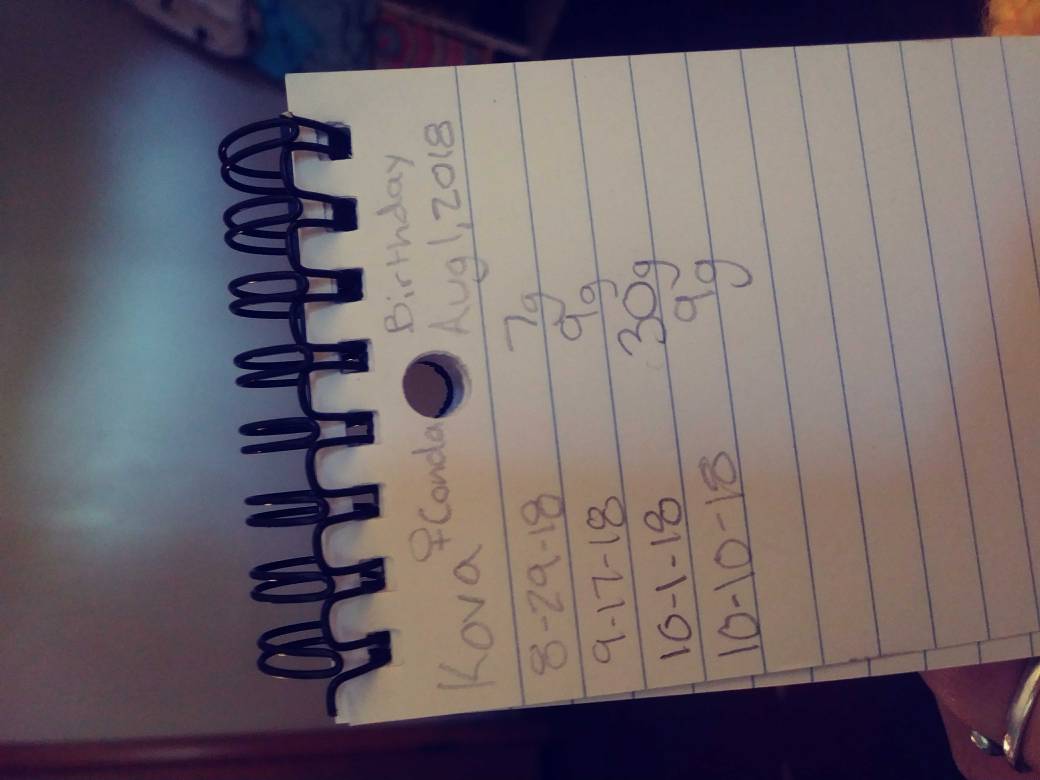 Birthday
Kova ♀ Conda Aug 1, 2018
8-29-18 7g
9-17-18 9g
10-1-18 30g
10-10-18 9g